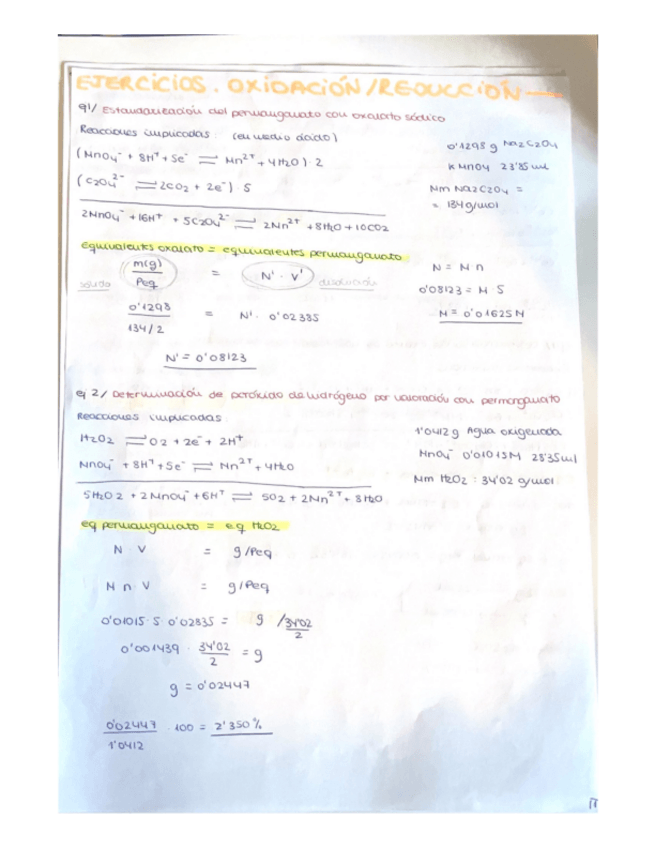 EJERCICIOS. OXIDACIÓN/REDUCCIÓN →
ej1/ Estandarización del permanganato con oxalato sódico
Reacciones implicadas: (en medio ácido)
(MnO4⁻ + 8H⁺ + 5e⁻ ⇌ Mn²⁺ + 4H2O)·2
(C2O4²⁻ ⇌ 2CO2 + 2e⁻)·5
2MnO4⁻ + 16H⁺ + 5C2O4²⁻ ⇌ 2Mn²⁺ + 8H2O + 10CO2
0'1298 g Na2C2O4
KMnO4 23'85 ml
Mm Na2C2O4 =
= 134 g/mol
equivalentes oxalato = equivalentes permanganato
sólido m(g)/Peq = N'·V' disolución
0'1298/134/2 = N'·0'02385
N' = 0'08123
N = M n
0'08123 = M·5
M = 0'01625 N
ej 2/ Determinación de peróxido de hidrógeno por valoración con permanganato
Reacciones implicadas
H2O2 ⇌ O2 + 2e⁻ + 2H⁺
MnO4⁻ + 8H⁺ + 5e⁻ ⇌ Mn²⁺ + 4H2O
5H2O2 + 2MnO4⁻ + 6H⁺ ⇌ 5O2 + 2Mn²⁺ + 8H2O
1'0412 g Agua oxigenada
MnO4⁻ 0'01015M 28'35 ml
Mm H2O2 : 34'02 g/mol
eq permanganato = eq H2O2
N · V = g/Peq
M · n · V = g/Peq
0'01015·5·0'02835 = g /34'02/2
0'001439 · 34'02/2 = g
g = 0'02447
0'02447/1'0412 · 100 = 2'350%